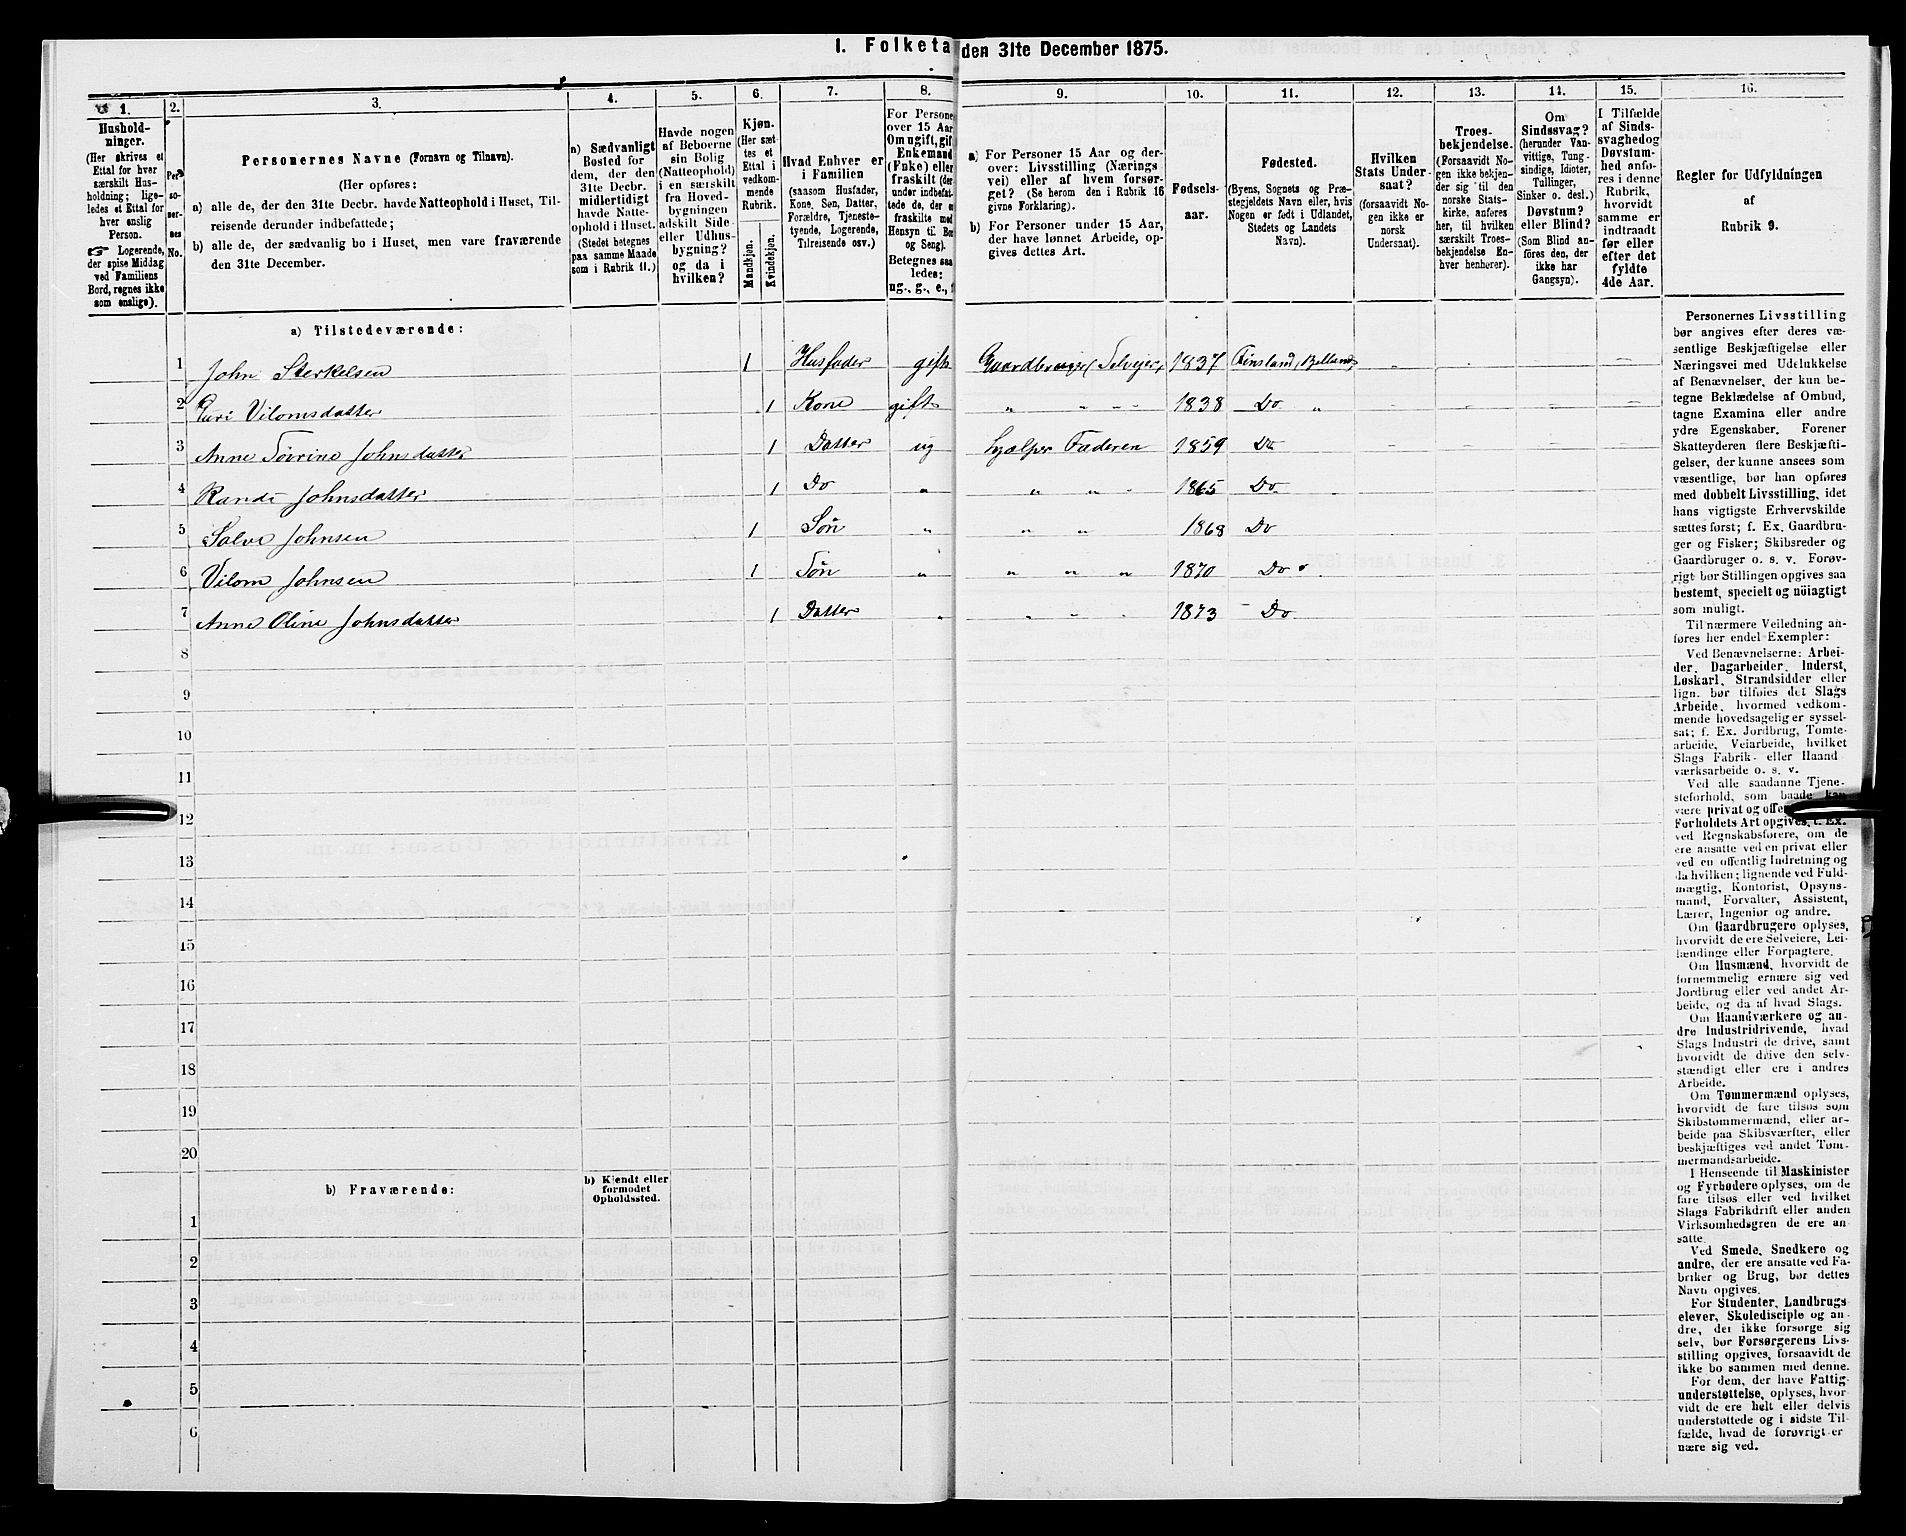 1. Folketa den 31te December 1875.
1.
Hushold-
ninger.
(Her skrives et
Ettal for hver
særskilt Hus-
holdning; lige-
ledes et Ettal for
hver enslig
Person.
☞ Logerende,
der spise Middag
ved Familiens
Bord, regnes ikke
som enslige).
2.
Per-
so-
ner-
nes
No.
3.
Personernes Navne (Fornavn og Tilnavn).
(Her opføres:
a) alle de, der den 31te Decbr. havde Natteophold i Huset, Til-
reisende derunder indbefattede;
b) alle de, der sædvanlig bo i Huset, men vare fraværende
den 31te December.
4.
a) Sædvanligt
Bosted for
dem, der den
31te Decbr.
midlertidigt
havde Natte-
ophold i Huset.
(Stedet betegnes
paa samme Maade
som i Rubrik 11.)
5.
Havde nogen
af Beboerne
sin Bolig
(Natteophold)
i en særskilt
fra Hoved-
bygningen
adskilt Side-
eller Udhus-
bygning?
og da i
hvilken?
6.
Kjøn.
(Her sæt-
tes et
Ettal i
vedkom-
mende
Rubrik.
Mandkjøn.
Kvindekjøn.
7.
Hvad Enhver er
i Familien
(saasom Husfader,
Kone, Søn, Datter,
Forældre, Tjeneste-
tyende, Logerende,
Tilreisende osv.)
8.
For Persone
over 15 Aar
Om ugift, gif
Enkemand
(Enke) eller
fraskilt (der
under indbefat-
tede de, der e
fraskilte med
Hensyn til Bo
og Seng).
Betegnes saa
ledes:
ug., g., e., f
9.
a) For Personer 15 Aar og der-
over: Livsstilling (Nærings
vei) eller af hvem forsør-
get? (Se herom den i Rubrik 16
givne Forklaring).
b) For Personer under 15 Aar,
der have lønnet Arbeide, op-
gives dettes Art.
10.
Fødsels-
aar.
11.
Fødested.
(Byens, Sognets og Præ-
stegjeldets Navn eller, hvis
Nogen er født i Udlandet,
Stedets og Landets
Navn).
12.
Hvilken
Stats Under-
saat?
(forsaavidt No-
gen ikke er
norsk
Undersaat).
13.
Troes-
bekjendelse.
(Forsaavidt No-
gen ikke bekjen-
der sig til den
norske Stats-
kirke, anføres
her, til hvilken
særskilt Troes-
bekjendelse En-
hver henhører).
14.
Om
Sindssvag?
(herunder Van-
vittige, Tung-
sindige, Idioter,
Tullinger,
Sinker o. desl.)
Døvstum?
eller Blind?
(Som Blind an-
føres den, der
ikke har
Gangsyn).
15.
I Tilfælde
af Sinds-
svaghed og
Døvstum-
hed anfø-
res i denne
Rubrik,
hvorvidt
samme er
indtraadt
før eller
efter det
fyldte
4de Aar.
16.
Regler for Udfyldningen
af
Rubrik 9.
a) Tilstedeværende:
1 John Sterkelsen 1 Husfader gift Gaardbruger (Selvejer) 1837 Finsland, Bjelland
2 Guri Vilomsdatter 1 Kone gift " " " 1838 Do "
3 Anne Tovrine Johnsdatter 1 Datter ug hjælper Faderen 1859 Do
4 Randi Johnsdatter 1 Do " " " " 1865 Do
5 Salve Johnsen 1 Søn " " " 1868 Do
6 Vilom Johnsen 1 Søn " " " " 1870 Do
7 Anne Oline Johnsdatter 1 Datter " " " " 1873 Do
8
9
10
11
12
13
14
15
16
17
18
19
20
b) Fraværende:
b) Kjendt eller
formodet
Opholdssted.
1
2
3
4
5
6
Personernes Livsstilling
bør angives efter deres væ-
sentlige Beskjæftigelse eller
Næringsvei med Udelukkelse
af Benævnelser, der kun be-
tegne Beklædelse af Ombud,
tagne Examina eller andre
ydre Egenskaber. Forener
Skatteyderen flere Beskjæfti-
gelser, der kunne ansees som
væsentlige, bør han opføres
med dobbelt Livsstilling, idet
hans vigtigste Erhvervskilde
sættes først; f. Ex. Gaardbru-
ger og Fisker; Skibsreder og
Gaardbruger o. s. v. Forøv-
rigt bør Stillingen opgives saa
bestemt, specielt og nöiagtigt
som muligt.
Til nærmere Veiledning an-
føres her endel Exempler:
Ved Benævnelserne: Arbei-
der, Dagarbeider, Inderst,
Løskarl, Strandsidder eller
lign. bør tilføies det Slags
Arbeide, hvormed vedkom-
mende hovedsagelig er syssel-
sat; f. Ex. Jordbrug, Tomte-
arbeide, Veiarbeide, hvilket
Slags Fabrik- eller Haand
værksarbeide o. s. v.
Ved alle saadanne Tjene-
steforhold, som baade kan
være privat og offen
Forholdets Art opgives, f. Ex.
ved Regnskabsførere, om de
ere ansatte ved en privat eller
ved en offentlig Indretning og
da hvilken; lignende ved Fuld-
mægtig, Kontorist, Opsyns-
mand, Forvalter, Assistent,
Lærer, Ingeniør og andre.
Om Gaardbrugere oplyses,
hvorvidt de ere Selveiere, Lei-
lændinge eller Forpagtere.
Om Husmænd, hvorvidt de
fornemmelig ernære sig ved
Jordbrug eller ved andet Ar-
beide, og da af hvad Slags.
Om Haandværkere og an-
dre Industridrivende, hvad
Slags Industri de drive, samt
hvorvidt de drive den selv-
stændigt eller ere i andres
Arbeide.
Om Tømmermænd oplyses,
hvorvidt de fare tilsøs som
Skibstømmermænd, eller ar-
beide paa Skibsværfter, eller
beskjæftiges ved andet Tøm-
mermandsarbeide.
I Henseende til Maskinister
og Fyrbødere oplyses, om de
fare tilsøs eller ved hvilket
Slags Fabrikdrift eller anden
Virksomhedsgren de ere an-
satte.
Ved Smede, Snedkere og
andre, der ere ansatte ved Fa-
briker og Brug, bør dettes
Navn opgives.
For Studenter, Landbrugs
elever, Skoledisciple og an-
dre, der ikke forsørge sig
selv, bør Forsørgerens Livs-
stilling opgives, forsaavidt de
ikke bo sammen med denne.
For dem, der have Fattig
understøttelse, oplyses, hvor-
vidt de ere helt eller delvis
understøttede og i sidste Til-
fælde, hvad de forøvrigt er-
nære sig ved.